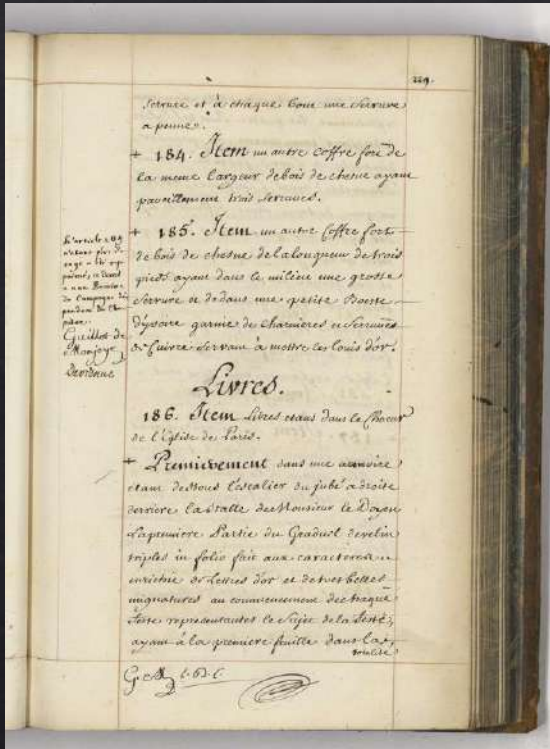 229.
serrure et à chaque bout une serrure
a penne.
+ 184. Item un autre coffre fort de
la meme largeur de bois de chesne ayant
pareillement trois serrures.
+ 185. Item un autre Coffre fort
de bois de chesne de la longueur de trois
pieds ayant dans le milieu une grosse
serrure et dedans une petite Boeste
d'yvoire garnie de charnieres et serrures
de Cuivre servant à mettre les louis d'or.
L'article 209
n'étant plus d'
usage a été
Guillot de
Monjoye
Livres.
186. Item Livres etans dans le Choeur
de l'Eglise de Paris.
+ Premierement dans une armoire
etant dessous l'escalier du jubé a droite
derriere la stalle de Monsieur le Doyen
La premiere Partie du Graduel de velin
triples in folio fait aux caracteres
enrichie de Lettres d'or et de tres belles
mignatures au commencement de chaque
feste representantes le Sujet de la feste,
ayant à la premiere feuille dans la